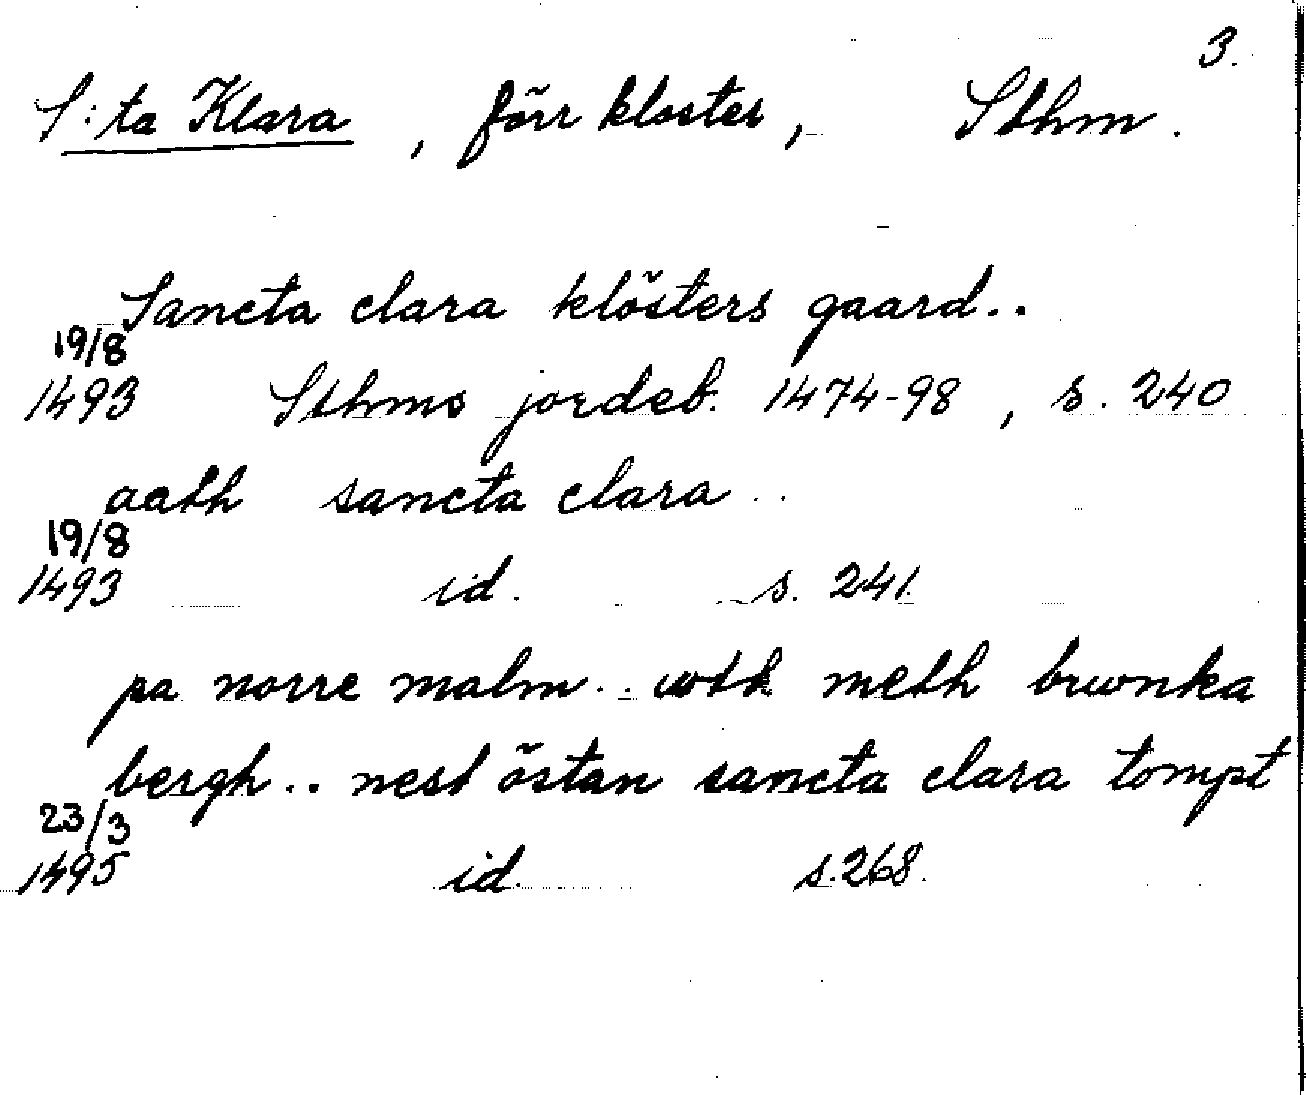 3.
S:ta Klara, förr kloster, Sthm.
Sancta clara klösters gaard..
19/8
1493 Sthms jordeb. 1474-98, s. 240
aath sancta clara..
19/8
1493 id. s. 241.
pa norre malm.. wth meth brwnka
bergh.. nest östan sancta clara tompt
23/3
1495 id. s. 268.